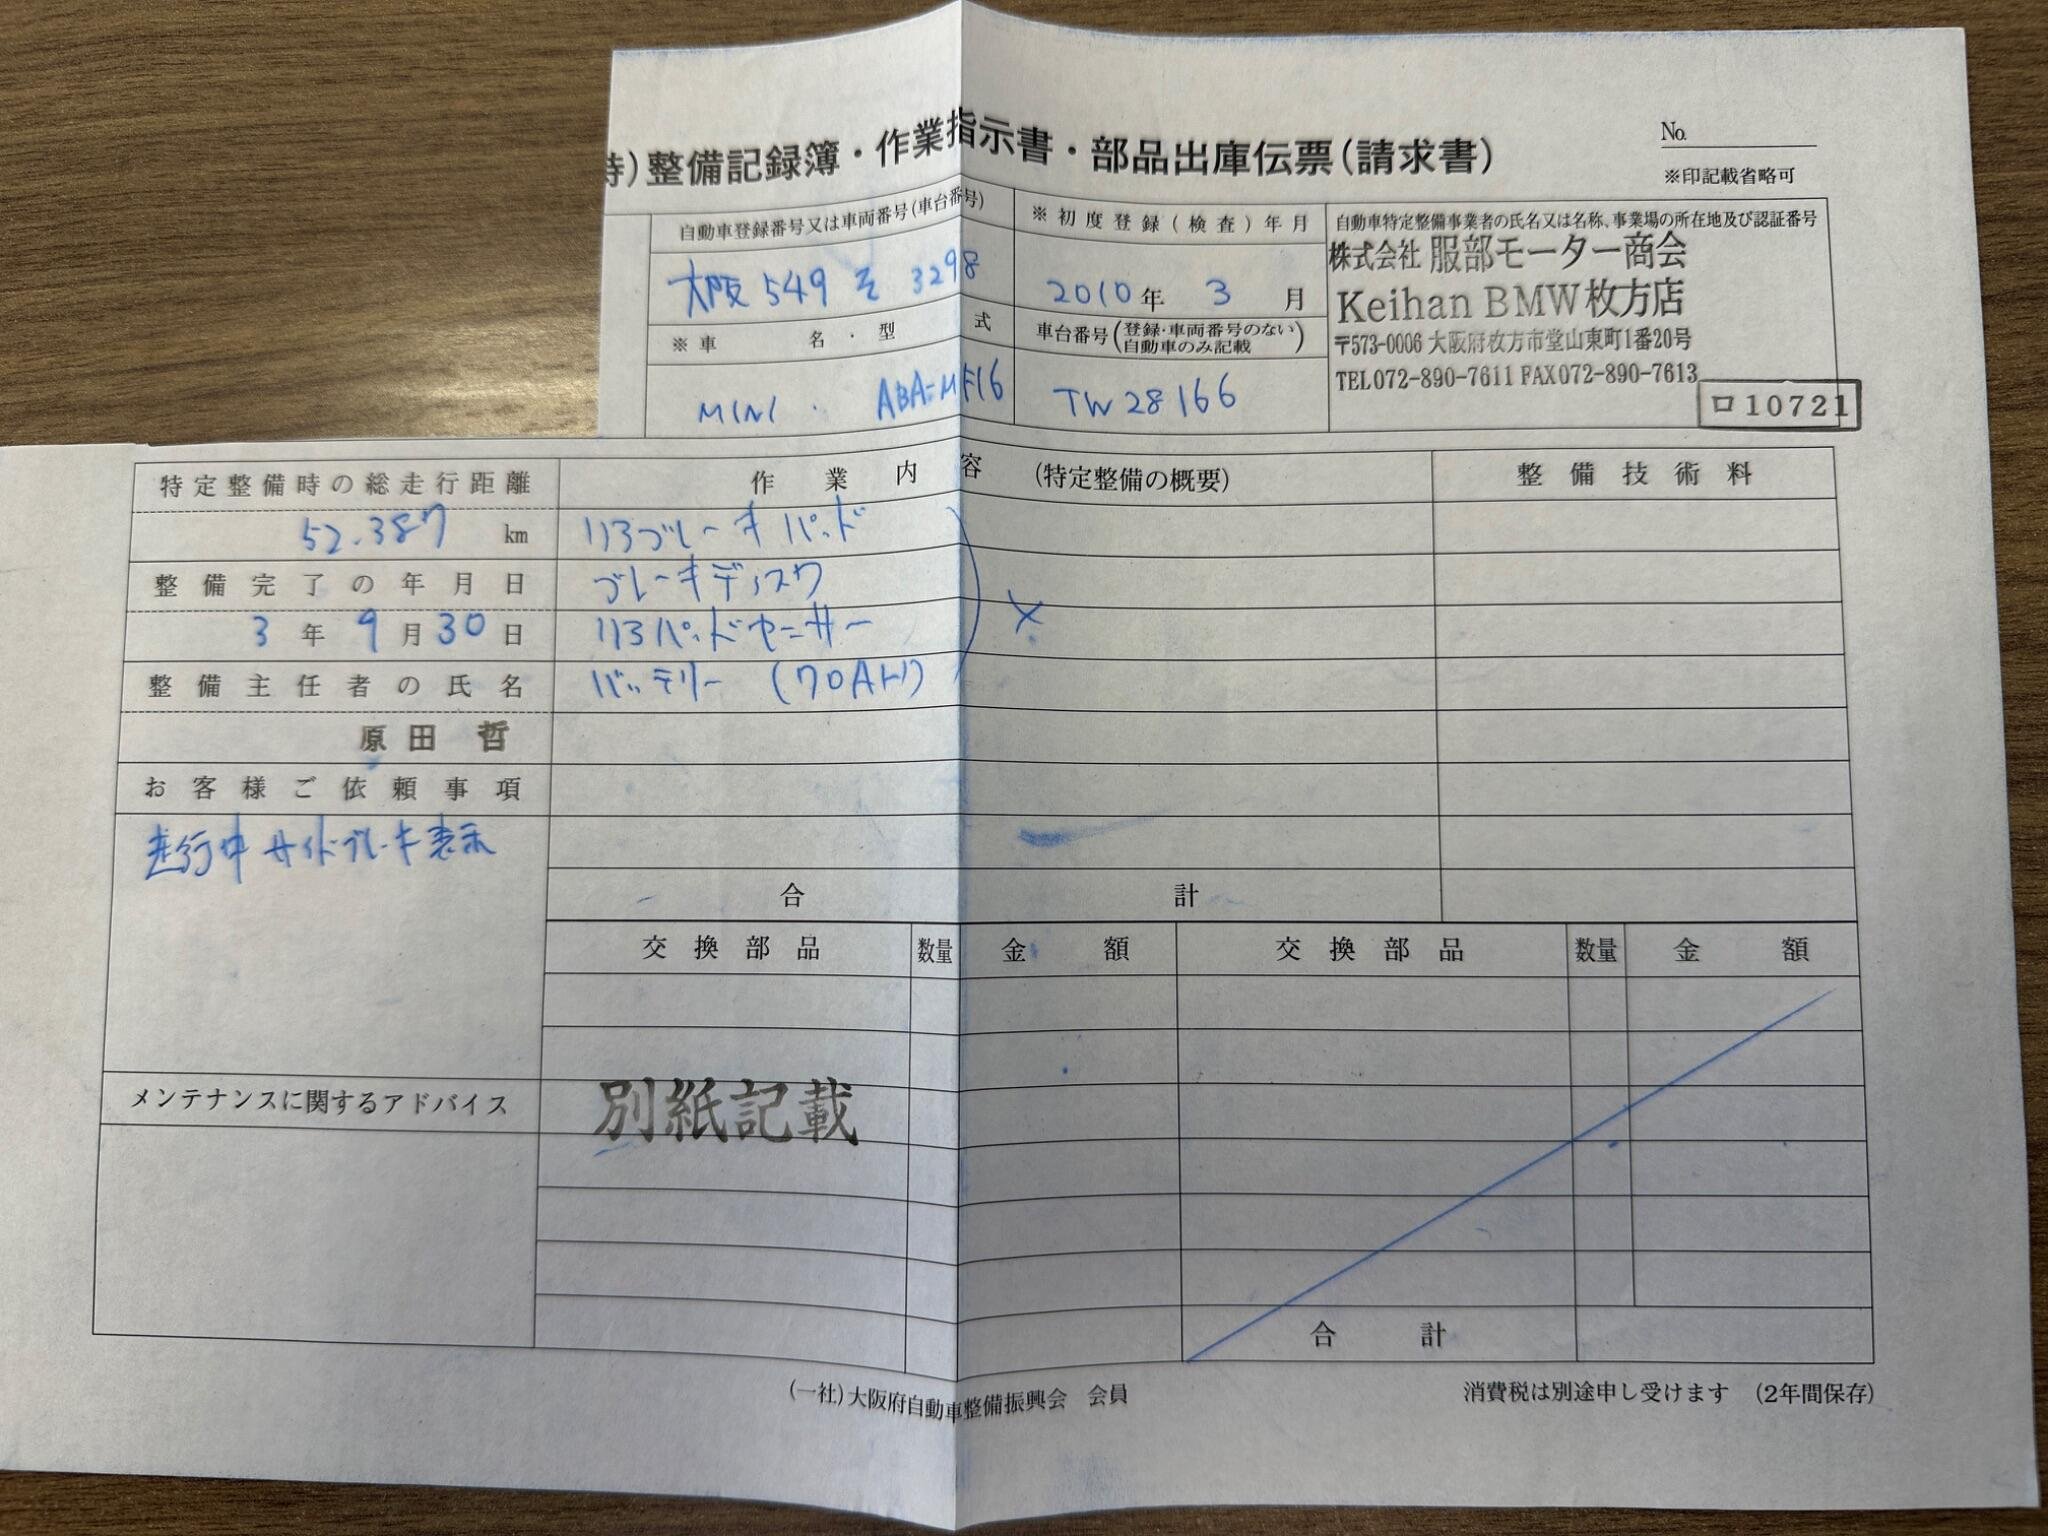 特)整備記録簿・作業指示書・部品出庫伝票(請求書)
No.
※印記載省略可
自動車登録番号又は車両番号(車台番号)
※初度登録(検査)年月
自動車特定整備事業者の氏名又は名称、事業場の所在地及び認証番号
大阪 549 そ 3298
2010年 3 月
株式会社 服部モーター商会
Keihan BMW枚方店
〒573-0006 大阪府枚方市堂山東町1番20号
TEL072-890-7611 FAX072-890-7613
ロ10721
※車名・型式
車台番号(登録・車両番号のない自動車のみ記載)
MINI . ABA-MF16
TW28166
特定整備時の総走行距離
作業内容 (特定整備の概要)
整備技術料
52.387 km
リヤブレーキパッド
整備完了の年月日
ブレーキディスク
×
3年9月30日
リヤパッドセンサー
整備主任者の氏名
バッテリー (70AH)
原田 哲
お客様ご依頼事項
走行中サイドブレーキ表示
合計
交換部品 数量 金額 交換部品 数量 金額
メンテナンスに関するアドバイス
別紙記載
合計
(一社)大阪府自動車整備振興会 会員
消費税は別途申し受けます (2年間保存)